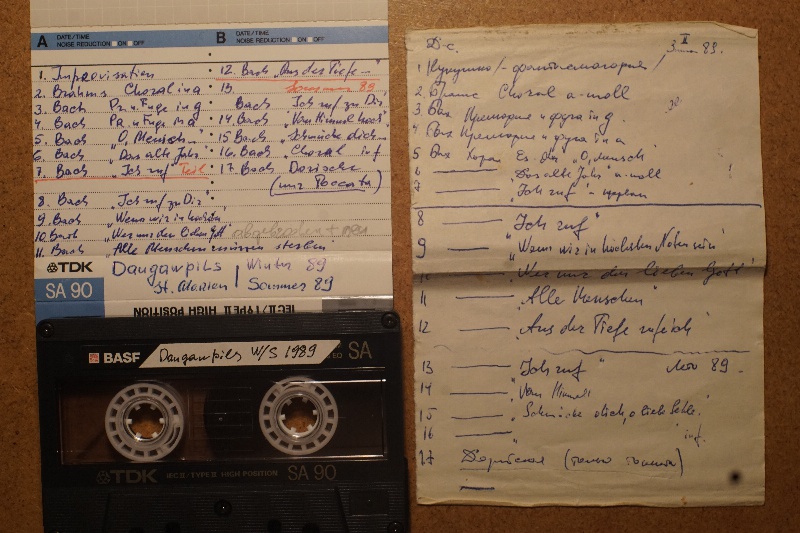 A DATE/TIME
NOISE REDUCTION ON OFF
B DATE/TIME
NOISE REDUCTION ON OFF
1. Improvisation
2. Brahms Choral in a
3. Bach Pr. u Fuge in g
4. Bach Pr. u Fuge in a
5. Bach "O, Mensch"
6. Bach "Das alte Jahr"
7. Bach "Ich ruf" Teil
8. Bach "Ich ruf zu Dir"
9. Bach "Wenn wir in
10. Bach "Wer nur den lieben Gott"
11. Bach "Alle Menschen müssen sterben"
12. Bach "Aus der Tiefe –"
13. Sommer 89
Bach "Ich ruf zu Dir,
14. Bach "Vom Himmel hoch"
15 Bach "Schmücke dich –
16. Bach "Choral in f
17. Bach Dorische
(nur Toccata)
TDK
SA 90
Daugawpils Winter 89
St. Marien Sommer 89
IEC II/TYPE II HIGH POSITION
BASF Daugawpils W/S 1989 SA
TDK IEC II/TYPE II HIGH POSITION SA 90
D-c. II 89.
1
2 Брамс Choral a-moll
3. Бах Прелюдия и фуга in g.
4 Бах Прелюдия и фуга in a
5 Бах Хорал Es dur "O, Mensch
6 "Das alte Jahr" a-moll
7 "Ich ruf"
8 "Ich ruf"
9 "Wenn wir in höchsten Nöten sein"
10 "Wer nur den lieben Gott"
11 "Alle Menschen"
12 "Aus der Tiefe rufe ich"
13 "Ich ruf" Лето 89.
14 "Vom Himmel
15 "Schmücke dich, o liebe Seele.
16 " in f.
17 Дорийская (только токката)